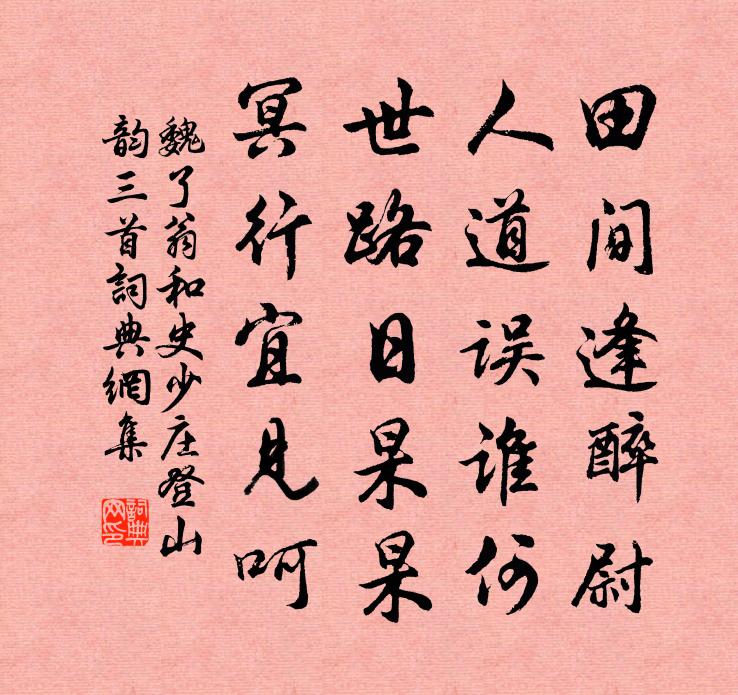 田间逢醉尉
人道误谁何
世路日杲杲
冥行宜见呵
魏了翁和史少庄登山
韵三首詞典網集
詞典
网印